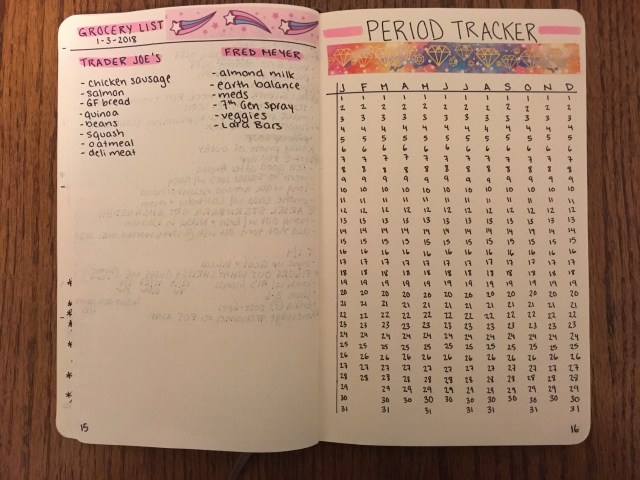 GROCERY LIST
1-3-2018
TRADER JOE'S
- chicken sausage
- salmon
- GF bread
- quinoa
- beans
- squash
- oatmeal
- deli meat
FRED MEYER
- almond milk
- earth balance
- meds
- 7th Gen spray
- veggies
- Lara Bars
15
PERIOD TRACKER
J F M A M J J A S O N D
1 1 1 1 1 1 1 1 1 1 1 1
2 2 2 2 2 2 2 2 2 2 2 2
3 3 3 3 3 3 3 3 3 3 3 3
4 4 4 4 4 4 4 4 4 4 4 4
5 5 5 5 5 5 5 5 5 5 5 5
6 6 6 6 6 6 6 6 6 6 6 6
7 7 7 7 7 7 7 7 7 7 7 7
8 8 8 8 8 8 8 8 8 8 8 8
9 9 9 9 9 9 9 9 9 9 9 9
10 10 10 10 10 10 10 10 10 10 10 10
11 11 11 11 11 11 11 11 11 11 11 11
12 12 12 12 12 12 12 12 12 12 12 12
13 13 13 13 13 13 13 13 13 13 13 13
14 14 14 14 14 14 14 14 14 14 14 14
15 15 15 15 15 15 15 15 15 15 15 15
16 16 16 16 16 16 16 16 16 16 16 16
17 17 17 17 17 17 17 17 17 17 17 17
18 18 18 18 18 18 18 18 18 18 18 18
19 19 19 19 19 19 19 19 19 19 19 19
20 20 20 20 20 20 20 20 20 20 20 20
21 21 21 21 21 21 21 21 21 21 21 21
22 22 22 22 22 22 22 22 22 22 22 22
23 23 23 23 23 23 23 23 23 23 23 23
24 24 24 24 24 24 24 24 24 24 24 24
25 25 25 25 25 25 25 25 25 25 25 25
26 26 26 26 26 26 26 26 26 26 26 26
27 27 27 27 27 27 27 27 27 27 27 27
28 28 28 28 28 28 28 28 28 28 28 28
29 29 29 29 29 29 29 29 29 29 29
30 30 30 30 30 30 30 30 30 30 30
31 31 31 31 31 31 31
16